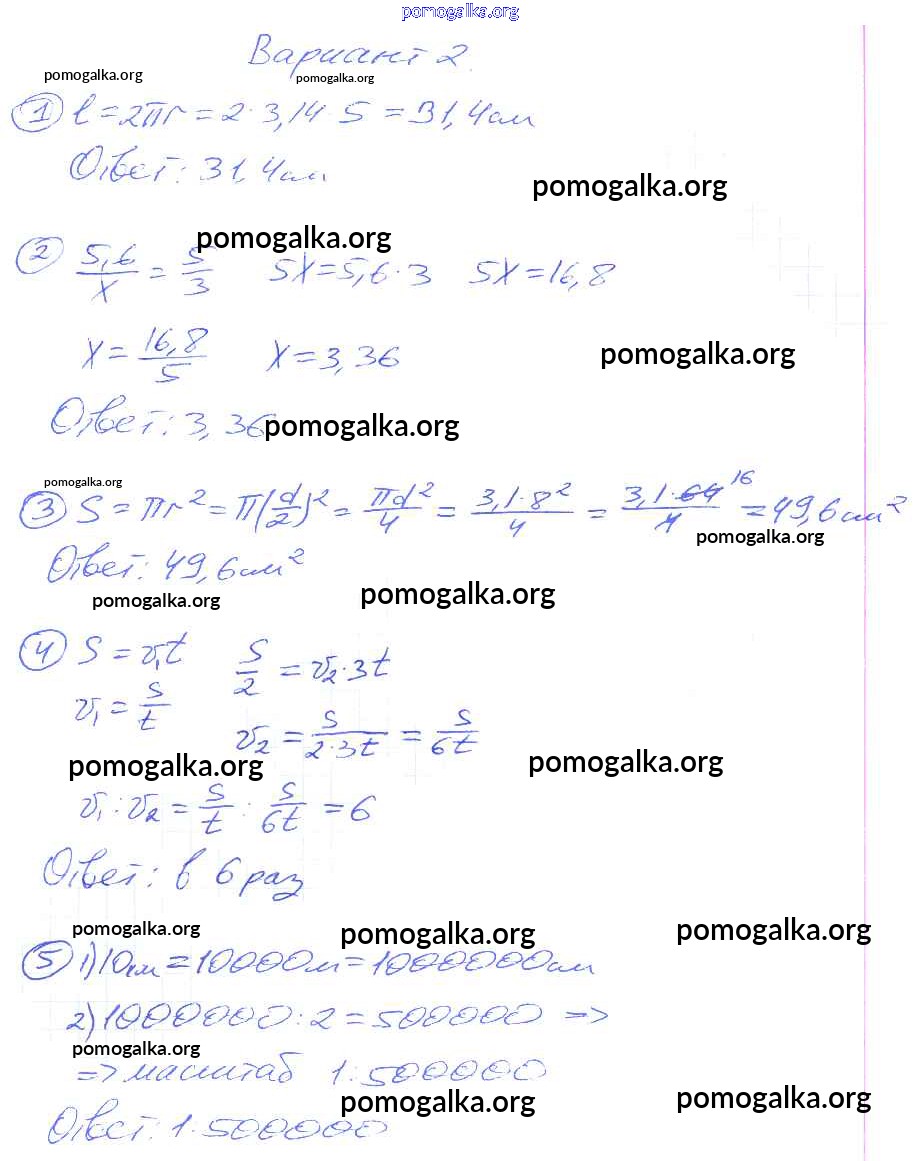 pomogalka.org
Вариант 2.
pomogalka.org pomogalka.org
1 l = 2πr = 2 · 3,14 · 5 = 31,4 см
Ответ: 31,4 см
pomogalka.org
pomogalka.org
2 5,6/x = 5/3 5x = 5,6 · 3 5x = 16,8
x = 16,8/5 x = 3,36
pomogalka.org
Ответ: 3,36
pomogalka.org
pomogalka.org
3 S = πr² = π(d/2)² = πd²/4 = 3,1 · 8²/4 = 3,1 · 64/4 16 = 49,6 см²
pomogalka.org
Ответ: 49,6 см²
pomogalka.org pomogalka.org
4 S = v₁t S/2 = v₂ · 3t
v₁ = S/t v₂ = S/2·3t = S/6t
pomogalka.org pomogalka.org
v₁ : v₂ = S/t : S/6t = 6
Ответ: в 6 раз
pomogalka.org pomogalka.org pomogalka.org
5 1) 10 км = 10000 м = 1000000 см
2) 1000000 : 2 = 500000 =>
pomogalka.org
=> масштаб 1:500000
pomogalka.org pomogalka.org
Ответ: 1:500000